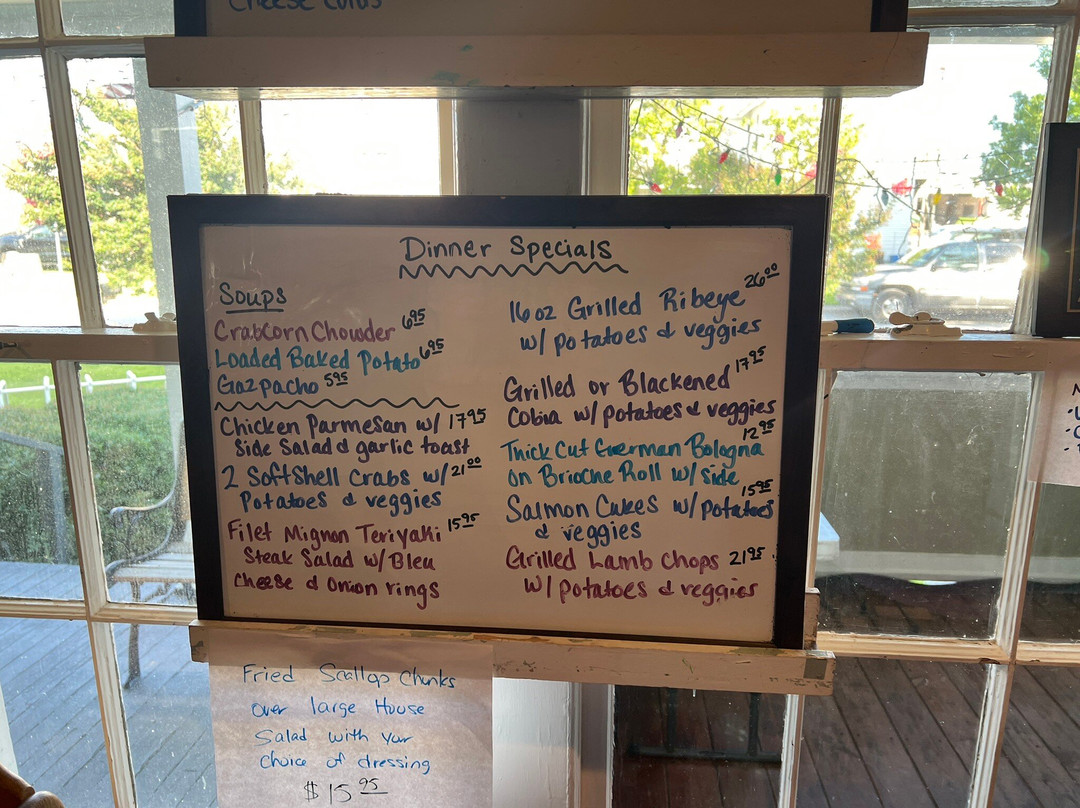 Cheese Curds
Dinner Specials
Soups
Crab Corn Chowder 6.95
Loaded Baked Potato 6.95
Gazpacho 5.95
Chicken Parmesan w/ 17.95
Side Salad & garlic toast
2 Soft Shell Crabs w/ 21.00
Potatoes & veggies
Filet Mignon Teriyaki 15.95
Steak Salad w/ Bleu
Cheese & Onion rings
16 oz Grilled Ribeye 26.00
w/ potatoes & veggies
Grilled or Blackened 17.95
Cobia w/ potatoes & veggies
12.95
Thick Cut German Bologna
on Brioche Roll w/ side
15.95
Salmon Cakes w/ potatoes
& veggies
Grilled Lamb Chops 21.95
w/ potatoes & veggies
Fried Scallop Chunks
over large House
Salad with your
choice of dressing
$15.95